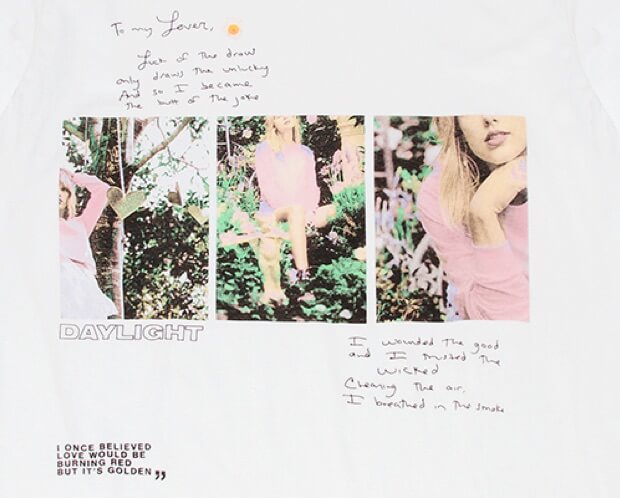 To my Lover,
Luck of the draw
only draws the unlucky
And so I became
the butt of the joke
DAYLIGHT
I wounded the good
and I trusted the
wicked
Clearing the air,
I breathed in the smoke
I ONCE BELIEVED
LOVE WOULD BE
BURNING RED
BUT IT'S GOLDEN ”